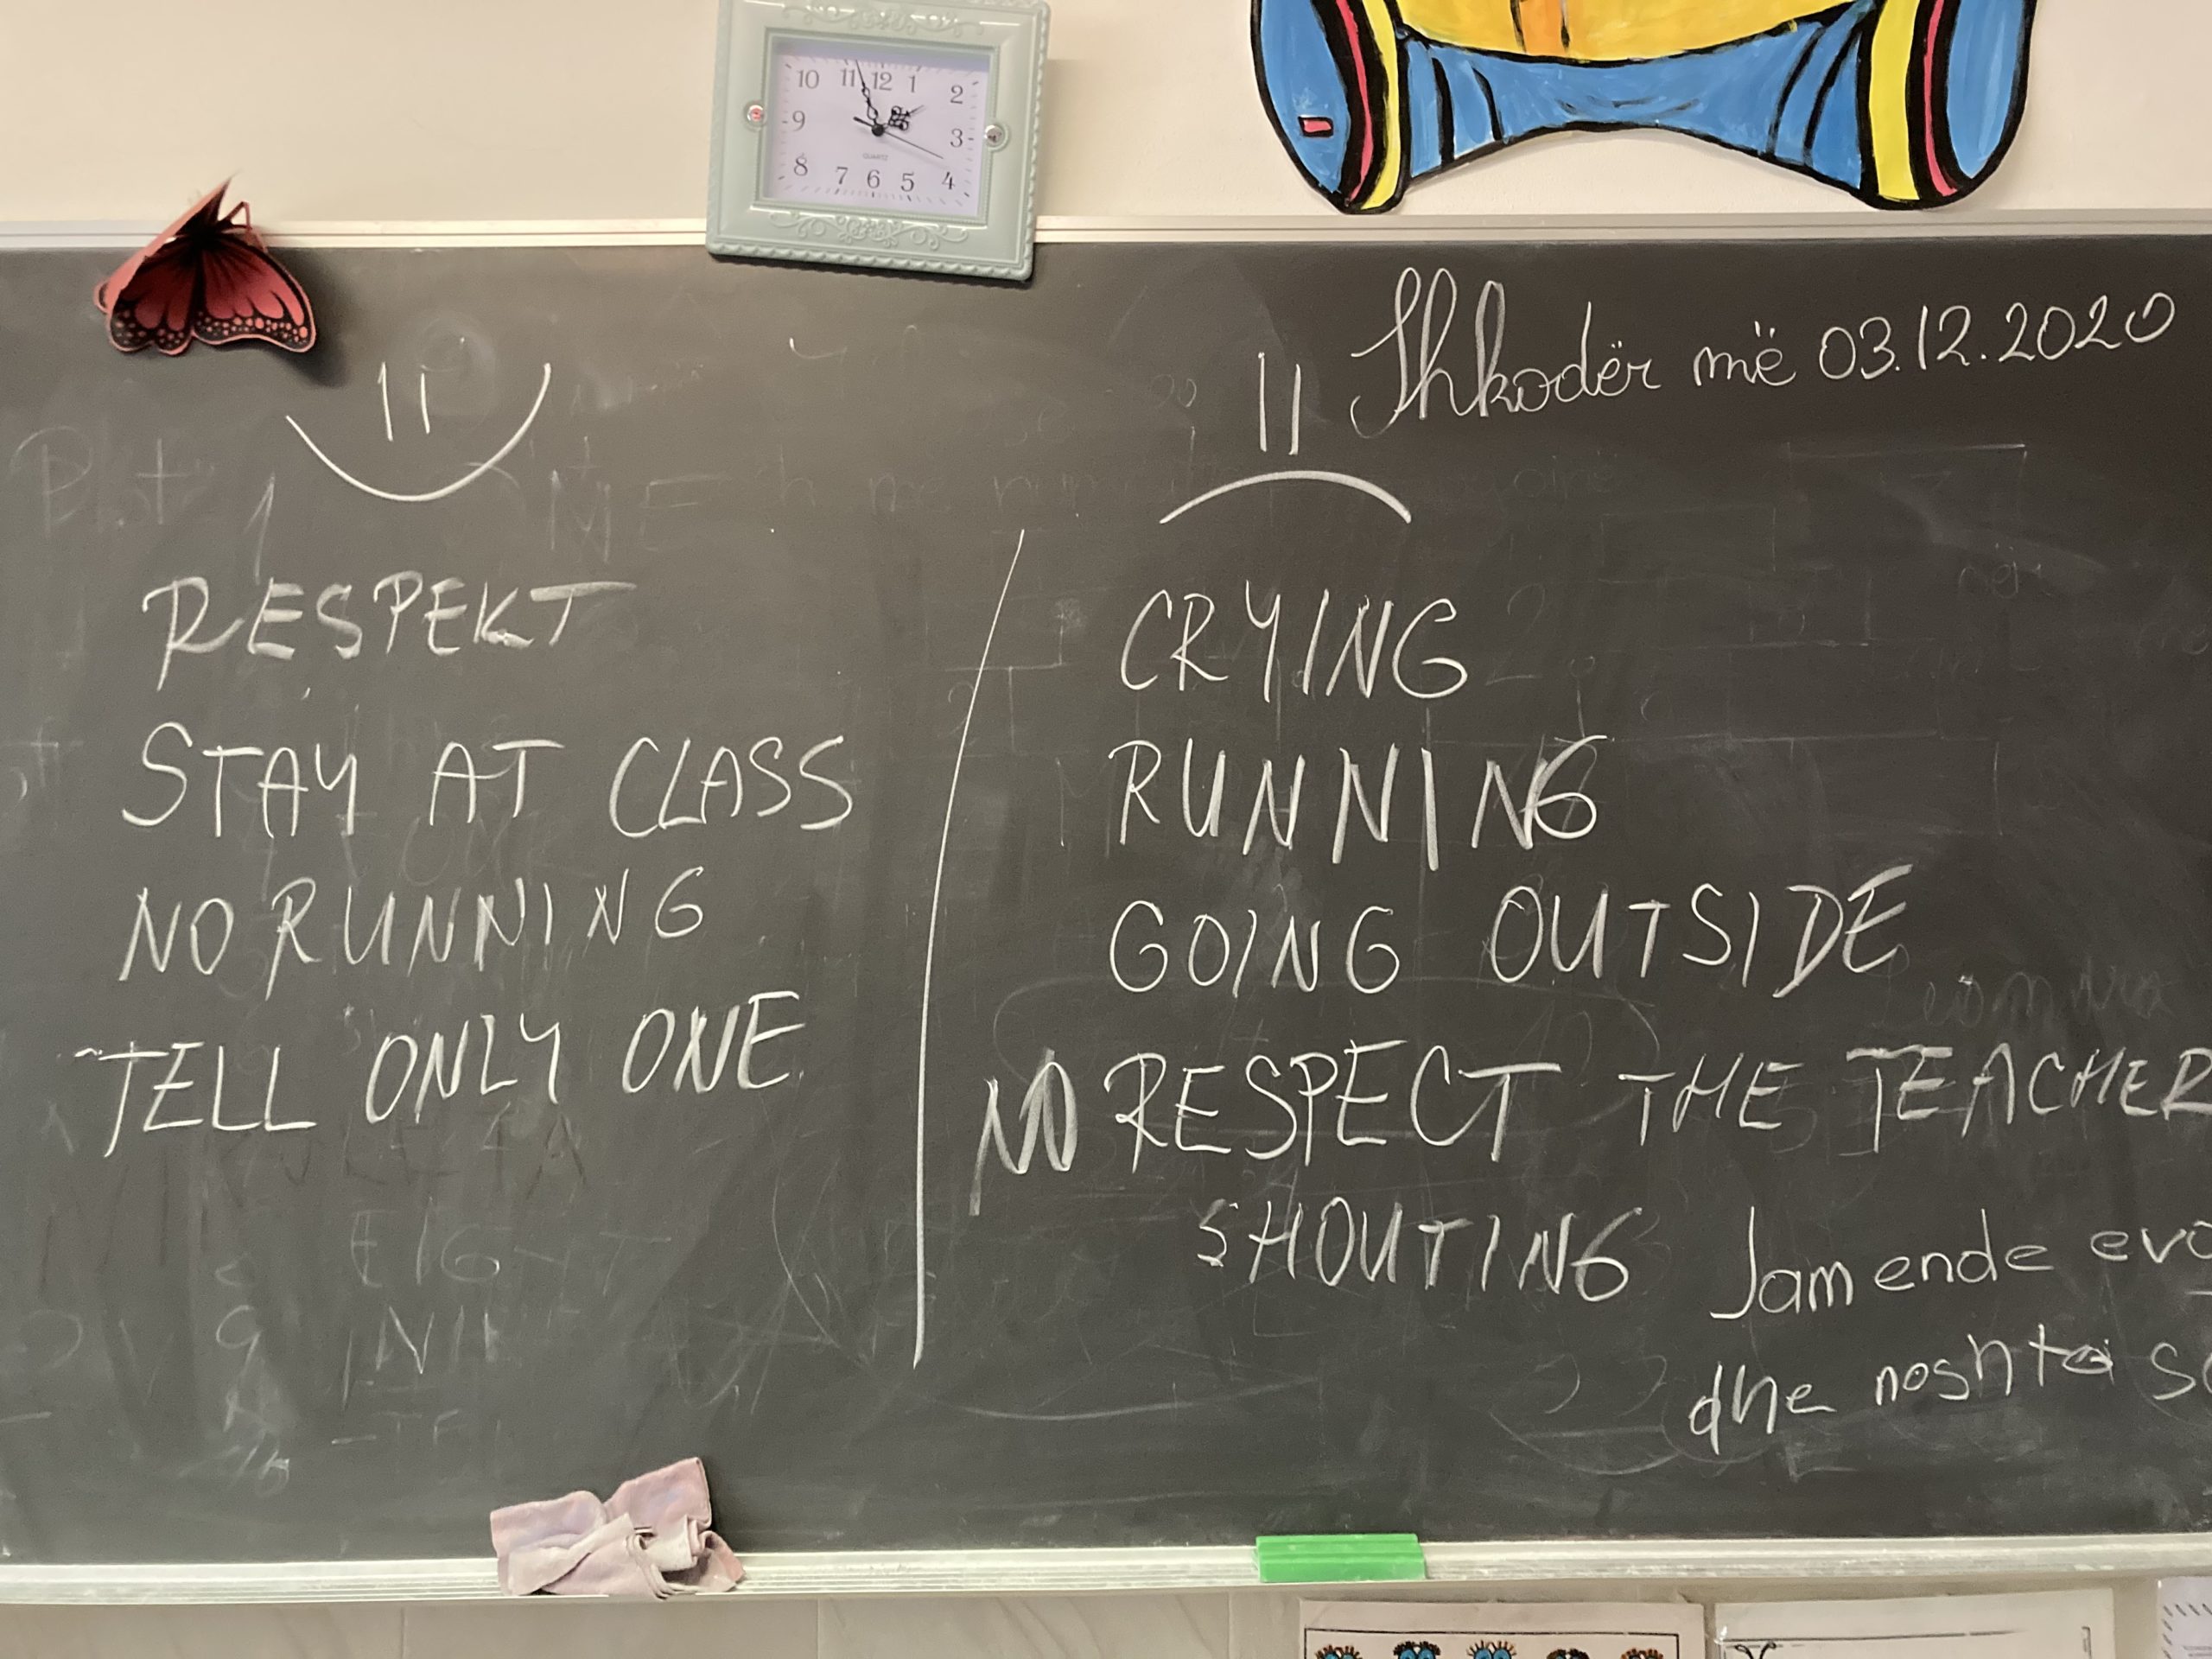 10 11 12 1 2
9 3
QUARTZ
8 7 6 5 4
Shkodër më 03.12.2020
RESPEKT
STAY AT CLASS
NO RUNNING
TELL ONLY ONE
CRYING
RUNNING
GOING OUTSIDE
NO RESPECT THE TEACHER
SHOUTING
Jam ende
dhe noshta
EIGHT
9